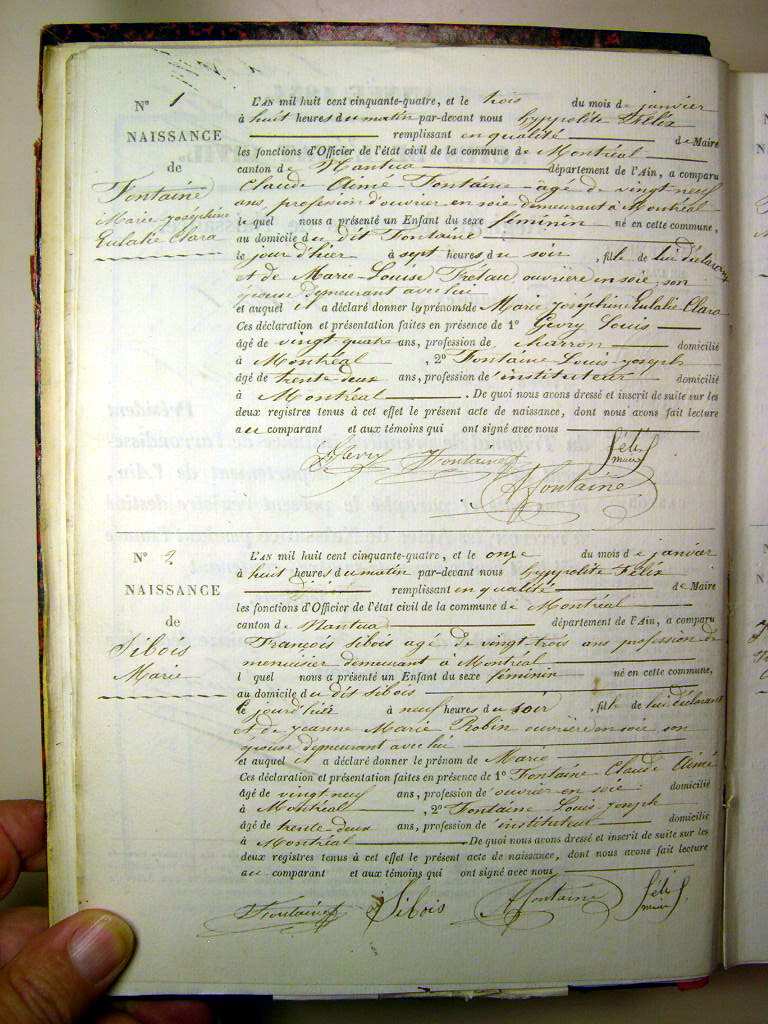 N° 1
NAISSANCE
de
Fontaine
Marie Joséphine
Eulalie Clara
L'AN mil huit cent cinquante-quatre, et le trois du mois de janvier
à huit heures du matin par-devant nous Hyppolite Félix
remplissant en qualité de Maire
les fonctions d'Officier de l'état civil de la commune de Montréal
canton de Nantua département de l'Ain, a comparu
Claude Aimé Fontaine âgé de vingt neuf
ans, profession d'ouvrier en soie demeurant à Montréal
le quel nous a présenté un Enfant du sexe féminin né en cette commune,
au domicile du dit Fontaine
le jour d'hier à sept heures du soir, fille de lui déclarant
et de Marie Louise Trétau ouvrière en soie, son
épouse demeurant avec lui
et auquel il a déclaré donner les prénoms de Marie Joséphine Eulalie Clara
Ces déclaration et présentation faites en présence de 1° Gevry Louis
âgé de vingt quatre ans, profession de charron domicilié
à Montréal, 2° Fontaine Louis Joseph
âgé de trente deux ans, profession d'instituteur domicilié
à Montréal. De quoi nous avons dressé et inscrit de suite sur les
deux registres tenus à cet effet le présent acte de naissance, dont nous avons fait lecture
au comparant et aux témoins qui ont signé avec nous
Gevry Fontaine Félix
maire
Fontaine
N° 2
NAISSANCE
de
Sibois
Marie
L'AN mil huit cent cinquante-quatre, et le onze du mois de janvier
à huit heures du matin par-devant nous Hyppolite Félix
remplissant en qualité de Maire
les fonctions d'Officier de l'état civil de la commune de Montréal
canton de Nantua département de l'Ain, a comparu
François Sibois agé de vingt trois ans profession de
menuisier demeurant à Montréal
l quel nous a présenté un Enfant du sexe féminin né en cette commune,
au domicile du dit Sibois
le jour d'hier à neuf heures du soir, fille de lui déclarant
et de Jeanne Marie Robin ouvrière en soie son
épouse demeurant avec lui
et auquel il a déclaré donner le prénom de Marie
Ces déclaration et présentation faites en présence de 1° Fontaine Claude Aimé
âgé de vingt neuf ans, profession d'ouvrier en soie domicilié
à Montréal, 2° Fontaine Louis Joseph
âgé de trente-deux ans, profession d'instituteur domicilié
à Montréal. De quoi nous avons dressé et inscrit de suite sur les
deux registres tenus à cet effet le présent acte de naissance, dont nous avons fait lecture
au comparant et aux témoins qui ont signé avec nous
Fontaine Sibois Fontaine Félix
maire